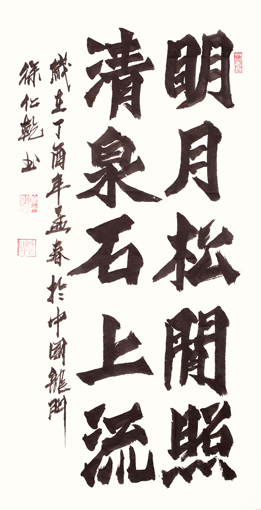 明月松間照
清泉石上流
歲在丁酉年孟春於中国龍門
徐仁乾书